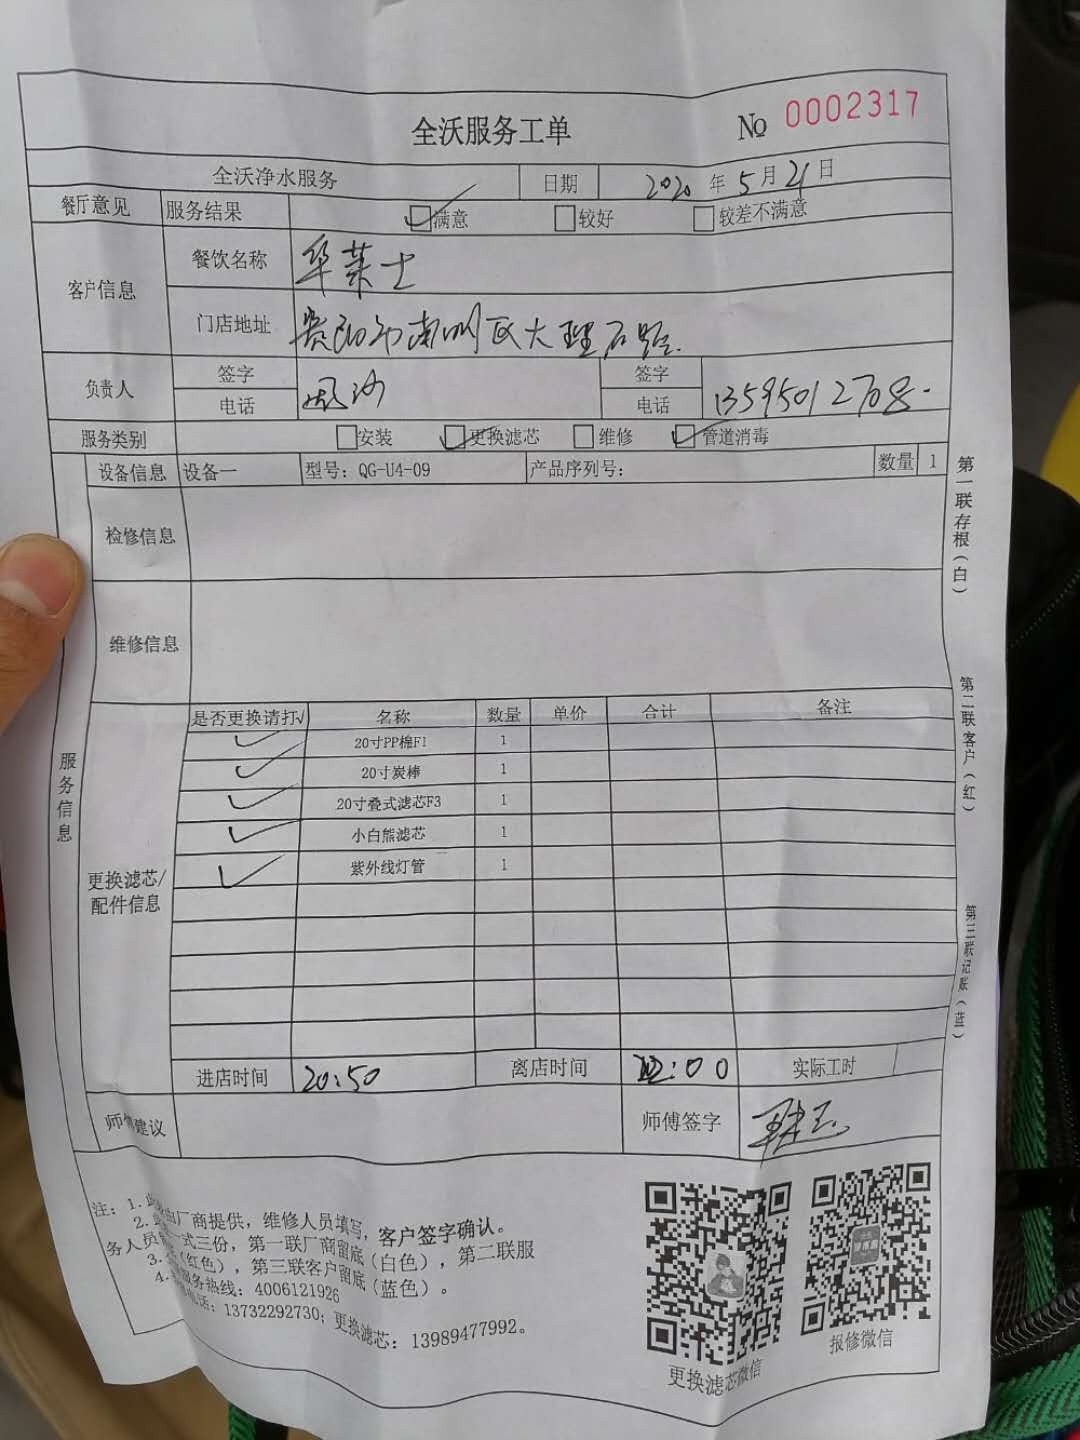 全沃服务工单
№ 0002317
全沃净水服务 日期 2020 年 5 月 21 日
餐厅意见 服务结果 满意 较好 较差不满意
客户信息 餐饮名称 华莱士
门店地址 贵阳市南明区大理石路.
负责人 签字 签字
电话 电话 13595012708.
服务类别 安装 更换滤芯 维修 管道消毒
设备信息 设备一 型号：QG-U4-09 产品序列号： 数量 1
检修信息
维修信息
服务信息
更换滤芯/
配件信息
是否更换请打√ 名称 数量 单价 合计 备注
20寸PP棉F1 1
20寸炭棒 1
20寸叠式滤芯F3 1
小白熊滤芯 1
紫外线灯管 1
进店时间 20:50 离店时间 22:00 实际工时
师傅建议 师傅签字
第一联存根（白）
第二联客户（红）
第三联记账（蓝）
注：1. 由厂商提供，维修人员填写，客户签字确认。
2. 一式三份，第一联厂商留底（白色），第二联服
务人员 （红色），第三联客户留底（蓝色）。
3. 服务热线：4006121926
4. 电话：13732292730；更换滤芯：13989477992。
更换滤芯微信
报修微信